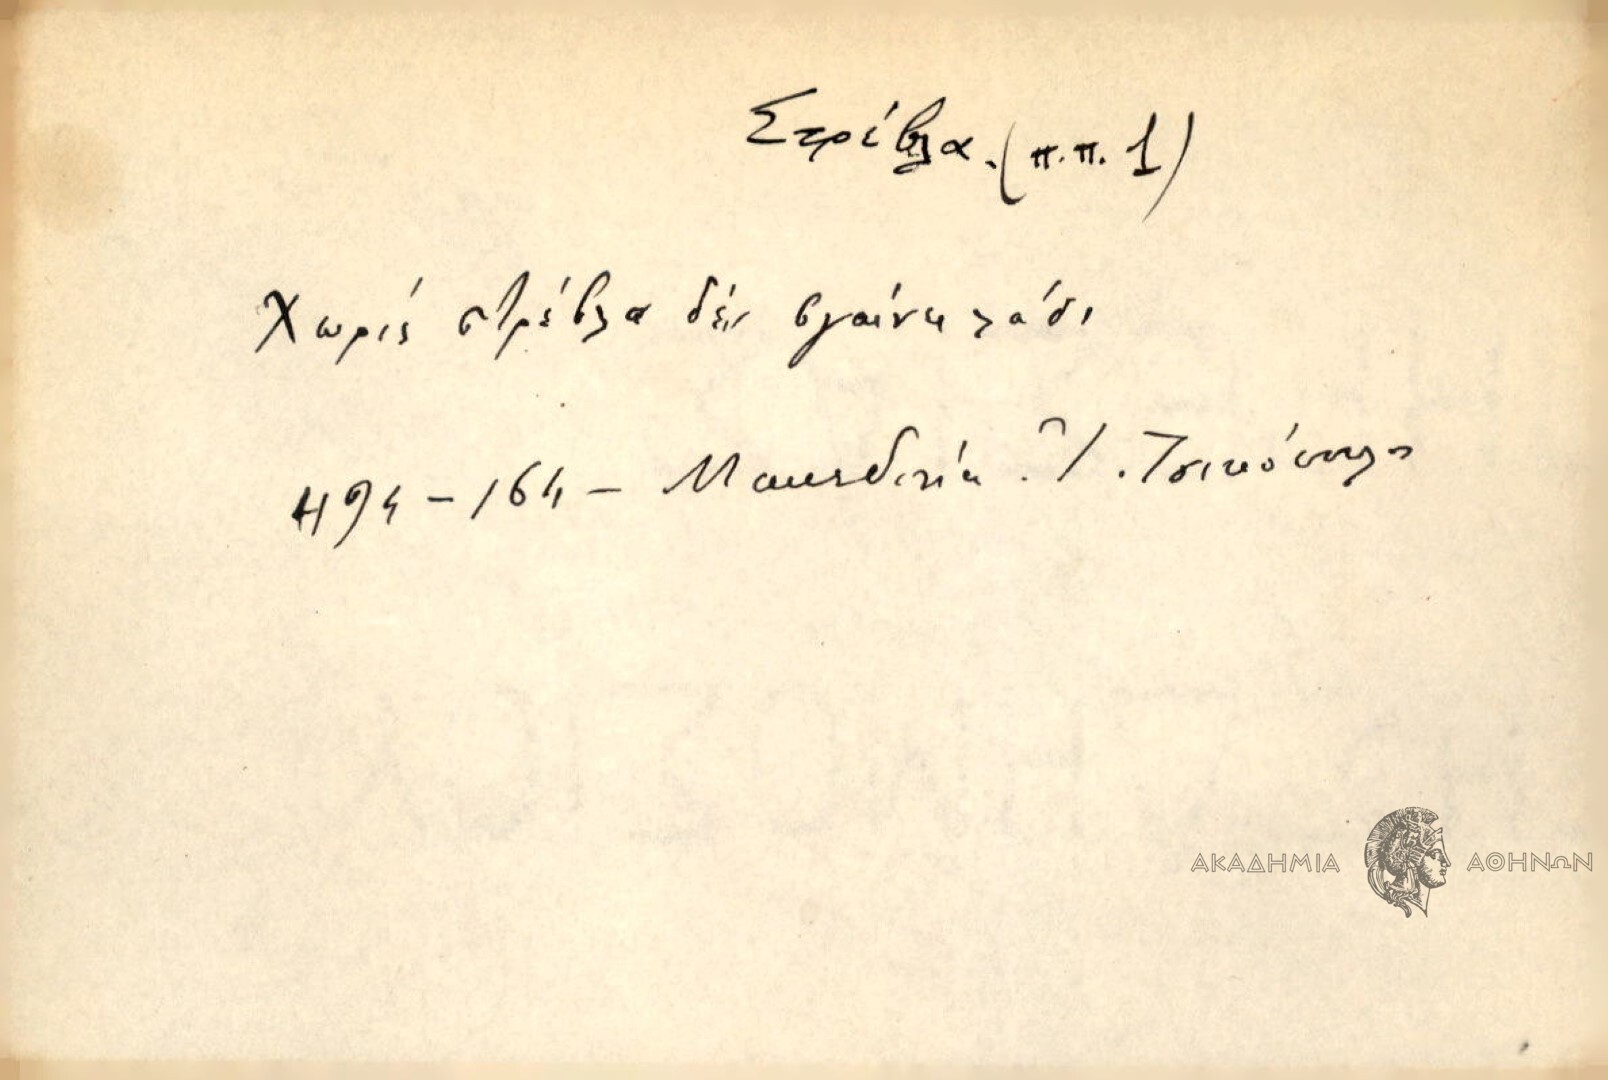 Στρέβλα. (π.π. 1)
Χωρίς στρέβλα δέν βγαίνει λάδι
494 - 164 - Μακεδονία. Ἰ.
ΑΚΑΔΗΜΙΑ ΑΘΗΝΩΝ